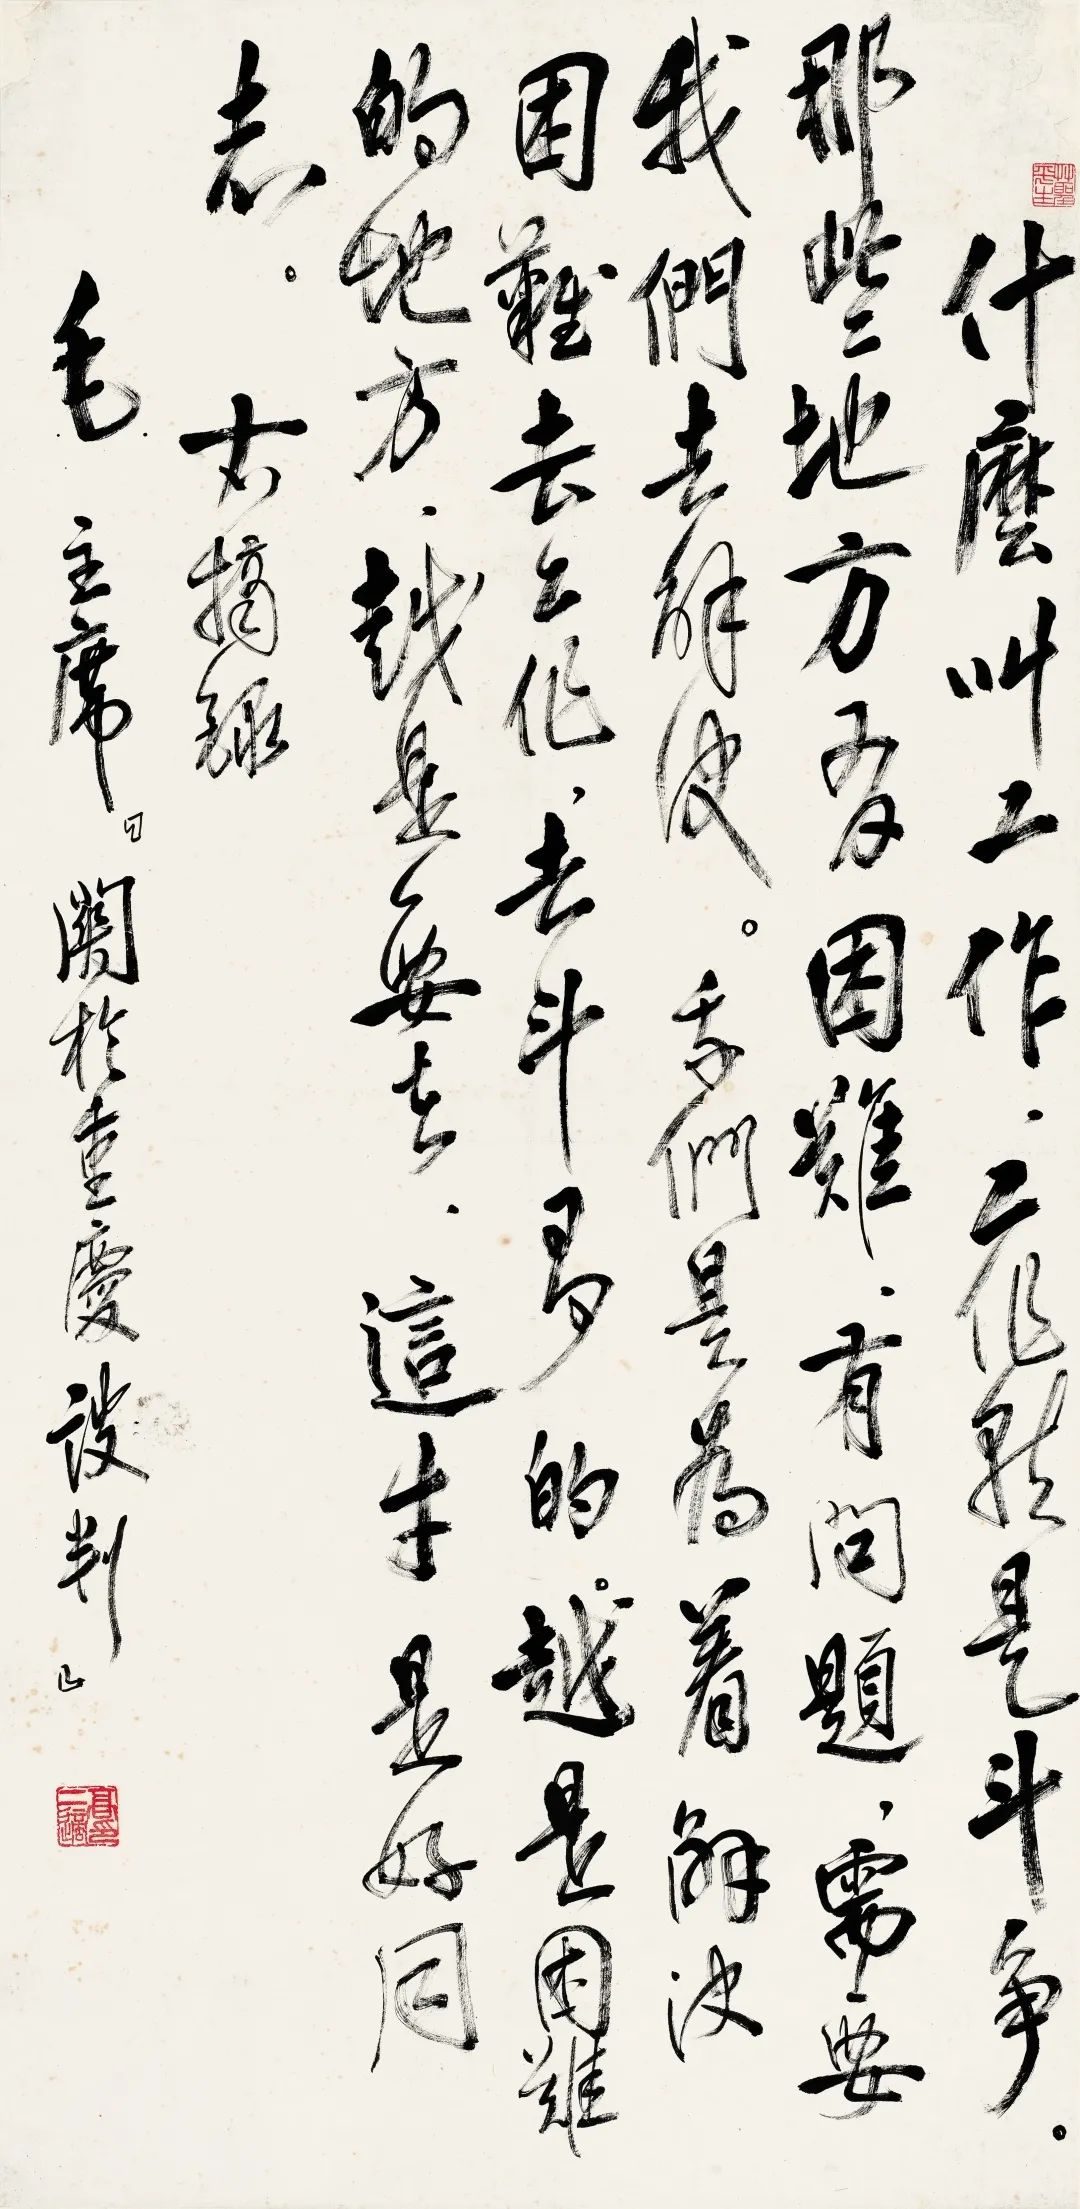 什麽叫工作、工作就是斗争。
那些地方有困難、有問題、需要
我們去解决。我們是為着解决
困難去工作、去斗争的。越是困難
的地方、越是要去、這才是好同
志。右摘録
毛主席﹃關於重慶談判﹄
高印二適